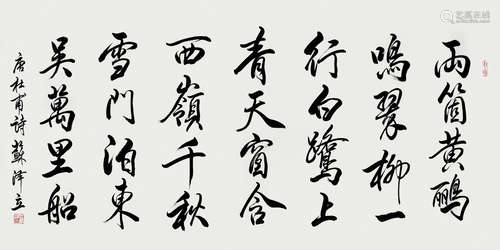 兩箇黄鸝
鳴翠柳一
行白鷺上
青天窗含
西嶺千秋
雪門泊東
吴萬里船
唐杜甫詩蘇澤立